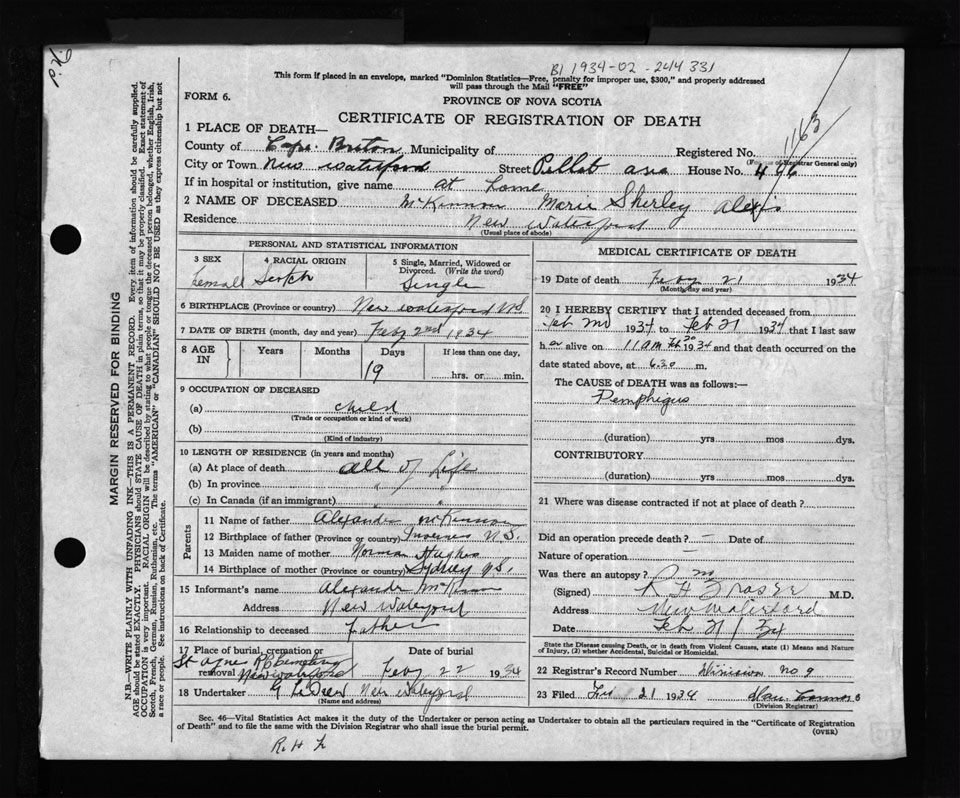 B1 1934-02-244331
This form if placed in an envelope, marked "Dominion Statistics—Free, penalty for improper use, $300," and properly addressed
will pass through the Mail "FREE"
FORM 6.
PROVINCE OF NOVA SCOTIA
CERTIFICATE OF REGISTRATION OF DEATH
1163
1 PLACE OF DEATH—
County of Cape Breton Municipality of Registered No.
(For use of Registrar General only)
City or Town New Waterford Street House No.
If in hospital or institution, give name at Home
2 NAME OF DECEASED McKinnon Marie Sherley
Residence New Waterford
(Usual place of abode)
PERSONAL AND STATISTICAL INFORMATION
3 SEX 4 RACIAL ORIGIN 5 Single, Married, Widowed or
Divorced. (Write the word)
Female Scotch Single
6 BIRTHPLACE (Province or country) New Waterford N.S.
7 DATE OF BIRTH (month, day and year) Feby 2nd 1934
8 AGE IN Years Months Days If less than one day,
19 hrs. or min.
9 OCCUPATION OF DECEASED
(a) child
(Trade or occupation or kind of work)
(b)
(Kind of industry)
10 LENGTH OF RESIDENCE (in years and months)
(a) At place of death all of Life
(b) In province "
(c) In Canada (if an immigrant) "
Parents
11 Name of father Alexander McKinnon
12 Birthplace of father (Province or country) Inverness N.S.
13 Maiden name of mother Hughes
14 Birthplace of mother (Province or country) Sydney
15 Informant's name Alexander McKinnon
Address New Waterford
16 Relationship to deceased Father
17 Place of burial, cremation or removal Date of burial
New Waterford Feby 22 1934
18 Undertaker New Waterford
(Name and address)
MEDICAL CERTIFICATE OF DEATH
19 Date of death Feby 21 1934
(Month, day and year)
20 I HEREBY CERTIFY that I attended deceased from
Feb 2nd 1934 to Feb 21 1934 that I last saw
her alive on 11 am Feb 20 1934 and that death occurred on the
date stated above, at 6.30 m.
The CAUSE OF DEATH was as follows:—
Pemphigus
(duration) yrs mos dys.
CONTRIBUTORY
(duration) yrs mos dys.
21 Where was disease contracted if not at place of death?
Did an operation precede death? — Date of
Nature of operation —
Was there an autopsy? no
(Signed) M.D.
Address New Waterford
Date Feb 21/34
State the Disease causing Death, or in death from Violent Causes, state (1) Means and Nature
of Injury, (2) whether Accidental, Suicidal or Homicidal.
22 Registrar's Record Number Division No 9
23 Filed 21 1934
(Division Registrar)
Sec. 46—Vital Statistics Act makes it the duty of the Undertaker or person acting as Undertaker to obtain all the particulars required in the "Certificate of Registration
of Death" and to file the same with the Division Registrar who shall issue the burial permit.
(OVER)
MARGIN RESERVED FOR BINDING
N.B.—WRITE PLAINLY WITH UNFADING INK—THIS IS A PERMANENT RECORD. Every item of information should be carefully supplied.
AGE should be stated EXACTLY. PHYSICIANS should STATE CAUSE OF DEATH in plain terms, so that it may be properly classified. Exact statement of
OCCUPATION is very important. RACIAL ORIGIN will be described by stating to what people or tongue the deceased person belonged, whether English, Irish,
Scotch, French, German, Russian, Ruthenian, etc. The terms "AMERICAN" or "CANADIAN" SHOULD NOT BE USED as they express citizenship but not
a race or people. See instructions on back of Certificate.